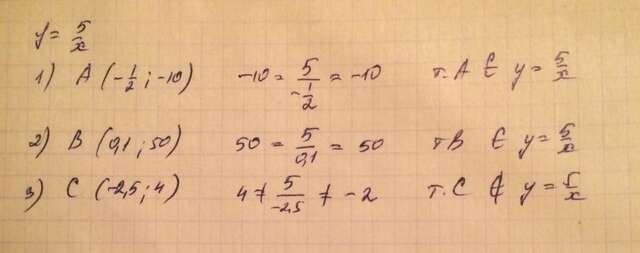 y = 5/x
1) A (-1/2; -10) -10 = 5/(-1/2) = -10 т. A ∈ y = 5/x
2) B (0,1; 50) 50 = 5/0,1 = 50 т B ∈ y = 5/x
3) C (-2,5; 4) 4 ≠ 5/-2,5 ≠ -2 т. C ∉ y = 5/x